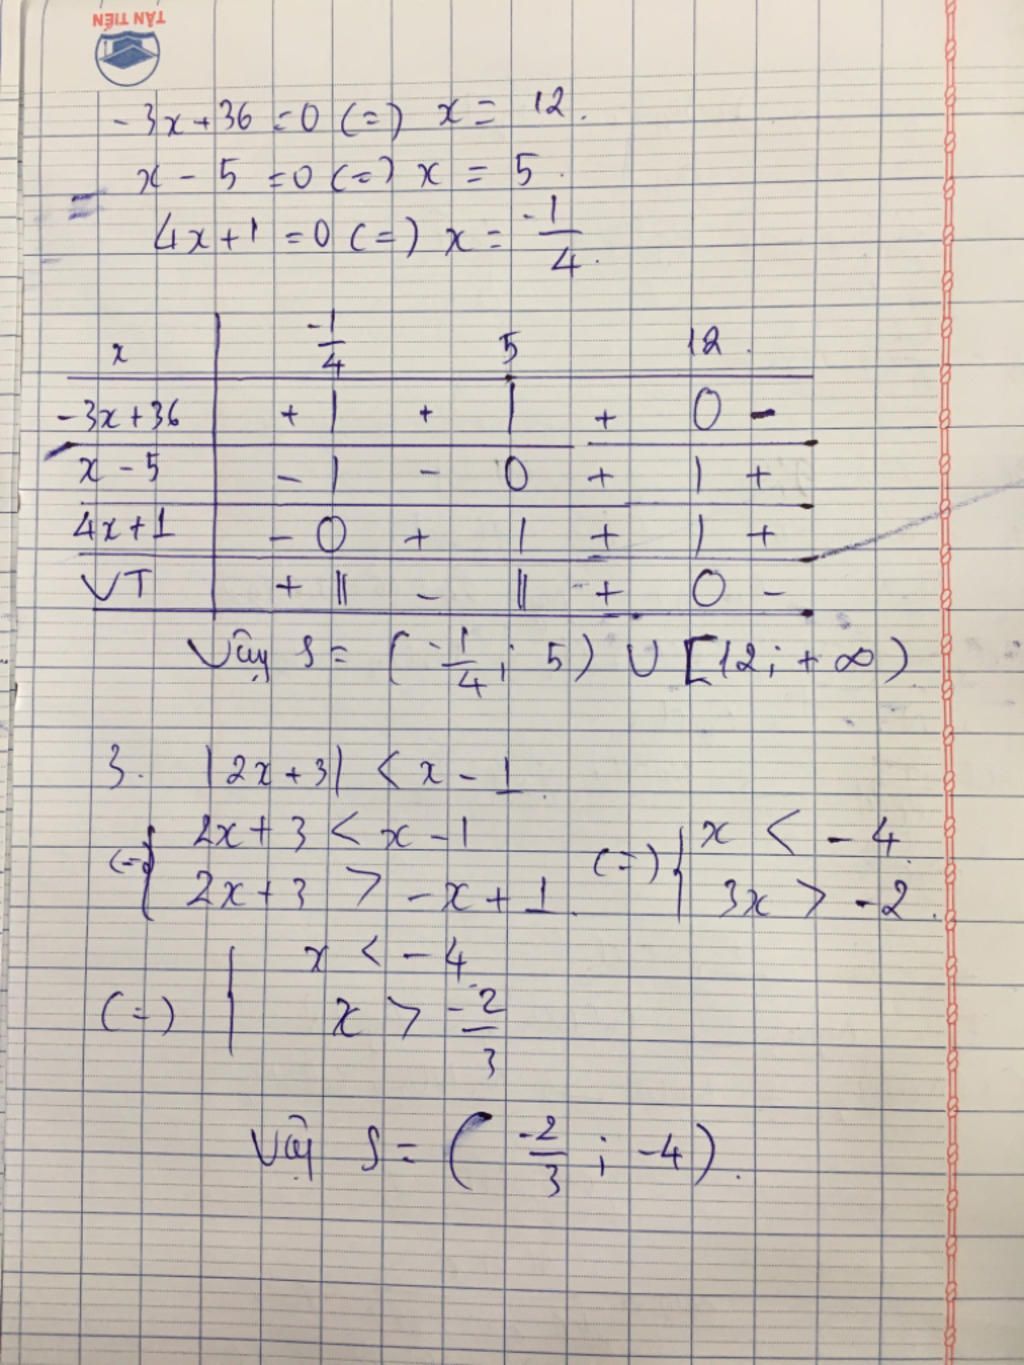 TÂN TIẾN
-3x+36 =0 (=) x = 12.
x - 5 =0 (=) x = 5.
4x+1 =0 (=) x = -1/4.
x | -1/4 5 12.
-3x+36 | + | + | + 0 -
x - 5 | - | - 0 + | +
4x+1 | - 0 + | + | +
VT | + || - || + 0 -
Vậy S = (-1/4; 5) ∪ [12; +∞)
3. |2x+3| < x - 1.
(=) { 2x+3 < x-1 (=) { x < -4.
2x+3 > -x+1. 3x > -2.
(=) { x < -4
x > -2/3
Vậy S = (-2/3 ; -4).